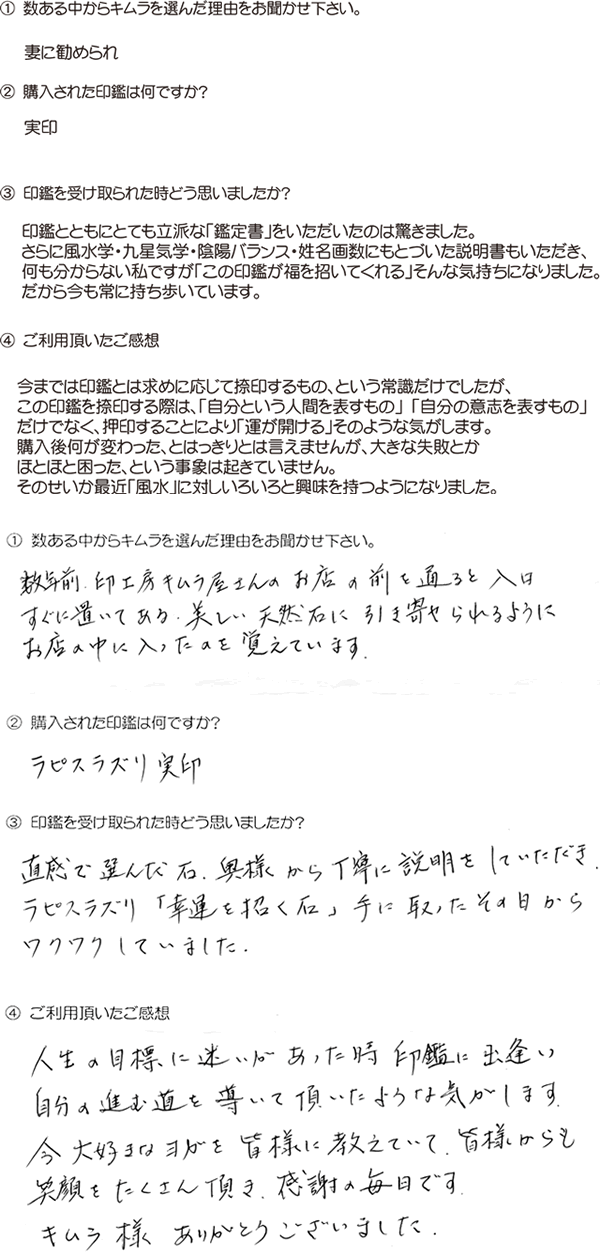 ① 数ある中からキムラを選んだ理由をお聞かせ下さい。
妻に勧められ
② 購入された印鑑は何ですか?
実印
③ 印鑑を受け取られた時どう思いましたか?
印鑑とともにとても立派な「鑑定書」をいただいたのは驚きました。
さらに風水学・九星気学・陰陽バランス・姓名画数にもとづいた説明書もいただき、
何も分からない私ですが「この印鑑が福を招いてくれる」そんな気持ちになりました。
だから今も常に持ち歩いています。
④ ご利用頂いたご感想
今までは印鑑とは求めに応じて捺印するもの、という常識だけでしたが、
この印鑑を捺印する際は、「自分という人間を表すもの」「自分の意志を表すもの」
だけでなく、押印することにより「運が開ける」そのような気がします。
購入後何が変わった、とはっきりとは言えませんが、大きな失敗とか
ほとほと困った、という事象は起きていません。
そのせいか最近「風水」に対しいろいろと興味を持つようになりました。
① 数ある中からキムラを選んだ理由をお聞かせ下さい。
数年前、印工房キムラ屋さんのお店の前を通ると入口
すぐに置いてある、美しい天然石に引き寄せられるように
お店の中に入ったのを覚えています。
② 購入された印鑑は何ですか?
ラピスラズリ実印
③ 印鑑を受け取られた時どう思いましたか?
直感で選んだ石、奥様から丁寧に説明をしていただき、
ラピスラズリ「幸運を招く石」手に取ったその日から
ワクワクしていました。
④ ご利用頂いたご感想
人生の目標に迷いがあった時印鑑に出逢い
自分の進む道を導いて頂いたような気がします。
今大好きなヨガを皆様に教えていて、皆様からも
笑顔をたくさん頂き、感謝の毎日です。
キムラ様 ありがとうございました。